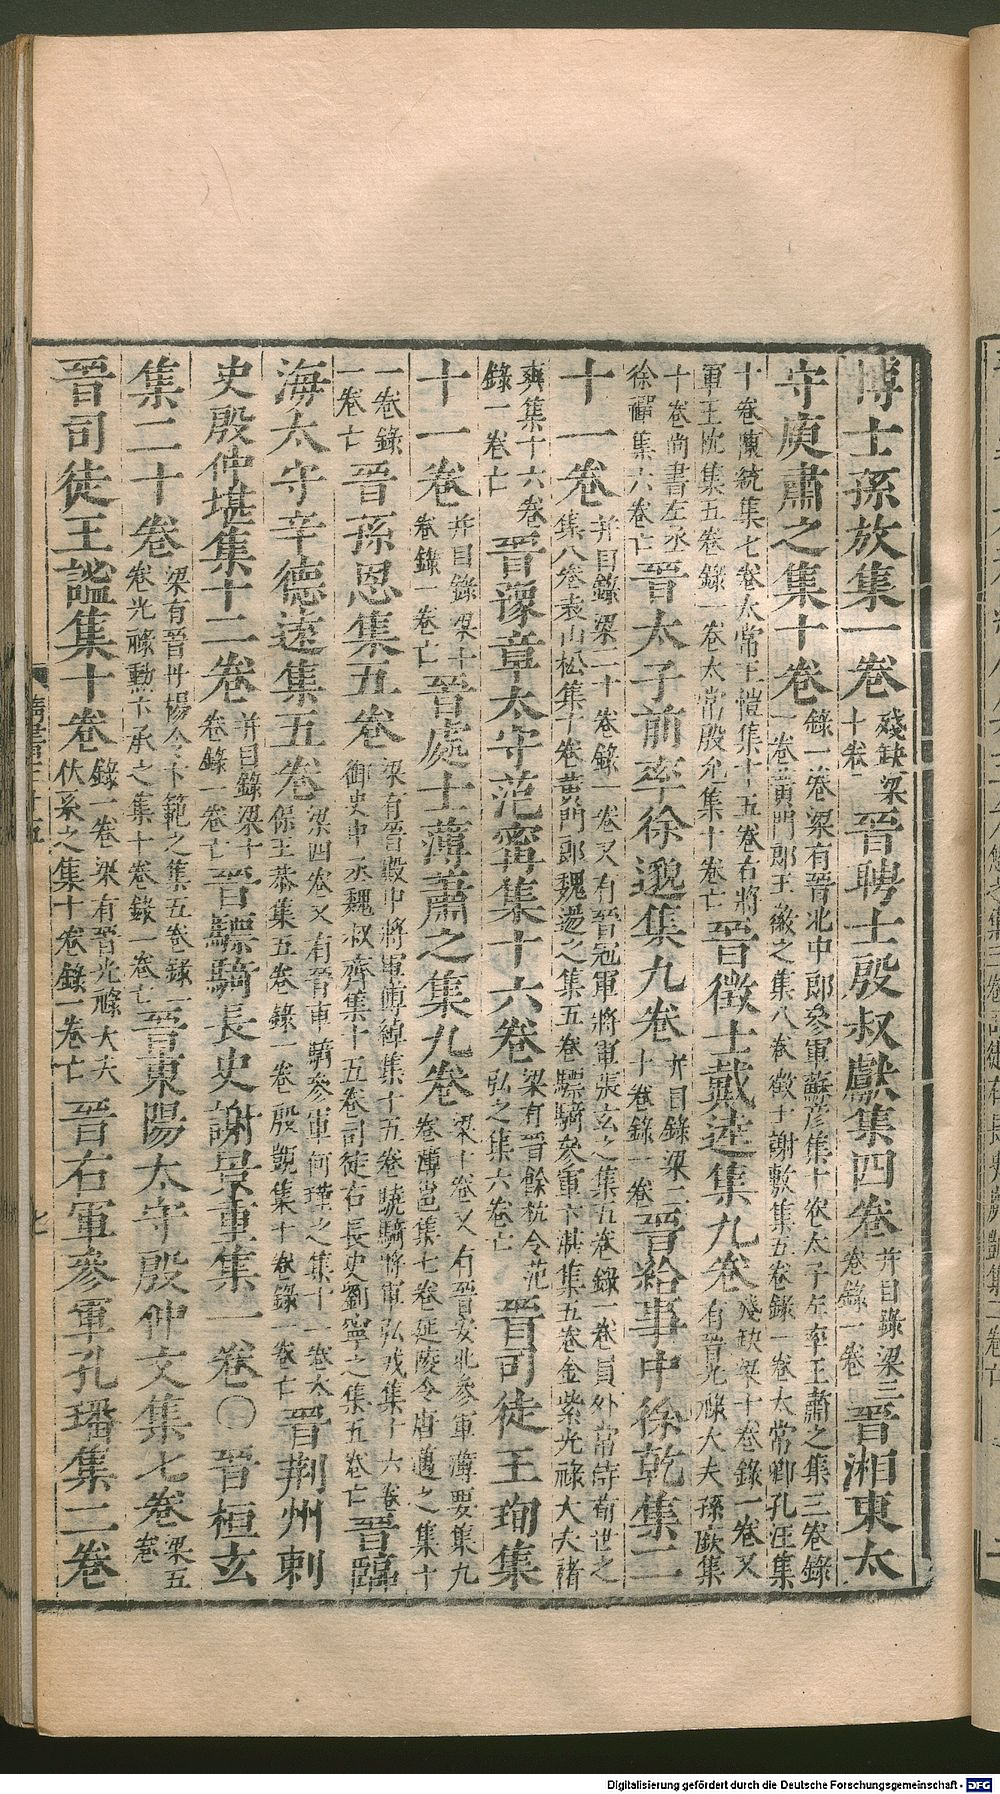 博士孫放集一卷殘缺梁十卷晉聘士殷叔獻集四卷并目錄梁三卷錄一卷晉湘東太
守庾肅之集十卷錄一卷梁有晉北中郎參軍蘇彦集十卷太子左率王肅之集三卷錄一卷黃門郎王徽之集八卷徵士謝敷集五卷錄一卷太常卿孔汪集
十卷陳統集七卷太常王愷集十五卷右將軍王忱集五卷錄一卷太常殷允集十卷亡晉徵士戴逵集九卷殘缺梁十卷錄一卷又有晉光祿大夫孫廞集
十卷尚書左丞徐禪集六卷亡晉太子前率徐邈集九卷并目錄梁二十卷錄一卷晉給事中徐乾集二
十一卷并目錄梁二十卷錄一卷又有晉冠軍將軍張玄之集五卷錄一卷員外常侍荀世之集八卷袁山松集十卷黃門郎魏逷之集五卷驃騎參軍卞湛集五卷金紫光祿大夫褚
爽集十六卷錄一卷亡晉豫章太守范寗集十六卷梁有晉餘杭令范弘之集六卷亡晉司徒王珣集
十一卷并目錄梁十卷錄一卷亡晉處士薄蕭之集九卷梁十卷又有晉安北參軍薄要集九卷薄邕集七卷延陵令唐邁之集十
一卷錄一卷亡晉孫恩集五卷梁有晉殿中將軍傅綽集十五卷驍騎將軍弘戎集十六卷御史中丞魏叔齊集十五卷司徒右長史劉寧之集五卷亡晉臨
海太守辛德遠集五卷梁四卷又有晉車騎參軍何瑾之集十一卷太保王恭集五卷錄一卷殷覬集十卷錄一卷亡晉荆州刺
史殷仲堪集十二卷并目錄梁十卷錄一卷亡晉驃騎長史謝景重集一卷○晉桓玄
集二十卷梁有晉丹楊令卞範之集五卷錄一卷光祿勲卞承之集十卷錄一卷亡晉東陽太守殷仲文集七卷梁五卷
晉司徒王謐集十卷錄一卷梁有晉光祿大夫伏系之集十卷錄一卷亡晉右軍參軍孔璠集二卷
七
Digitalisierung gefördert durch die Deutsche Forschungsgemeinschaft - DFG